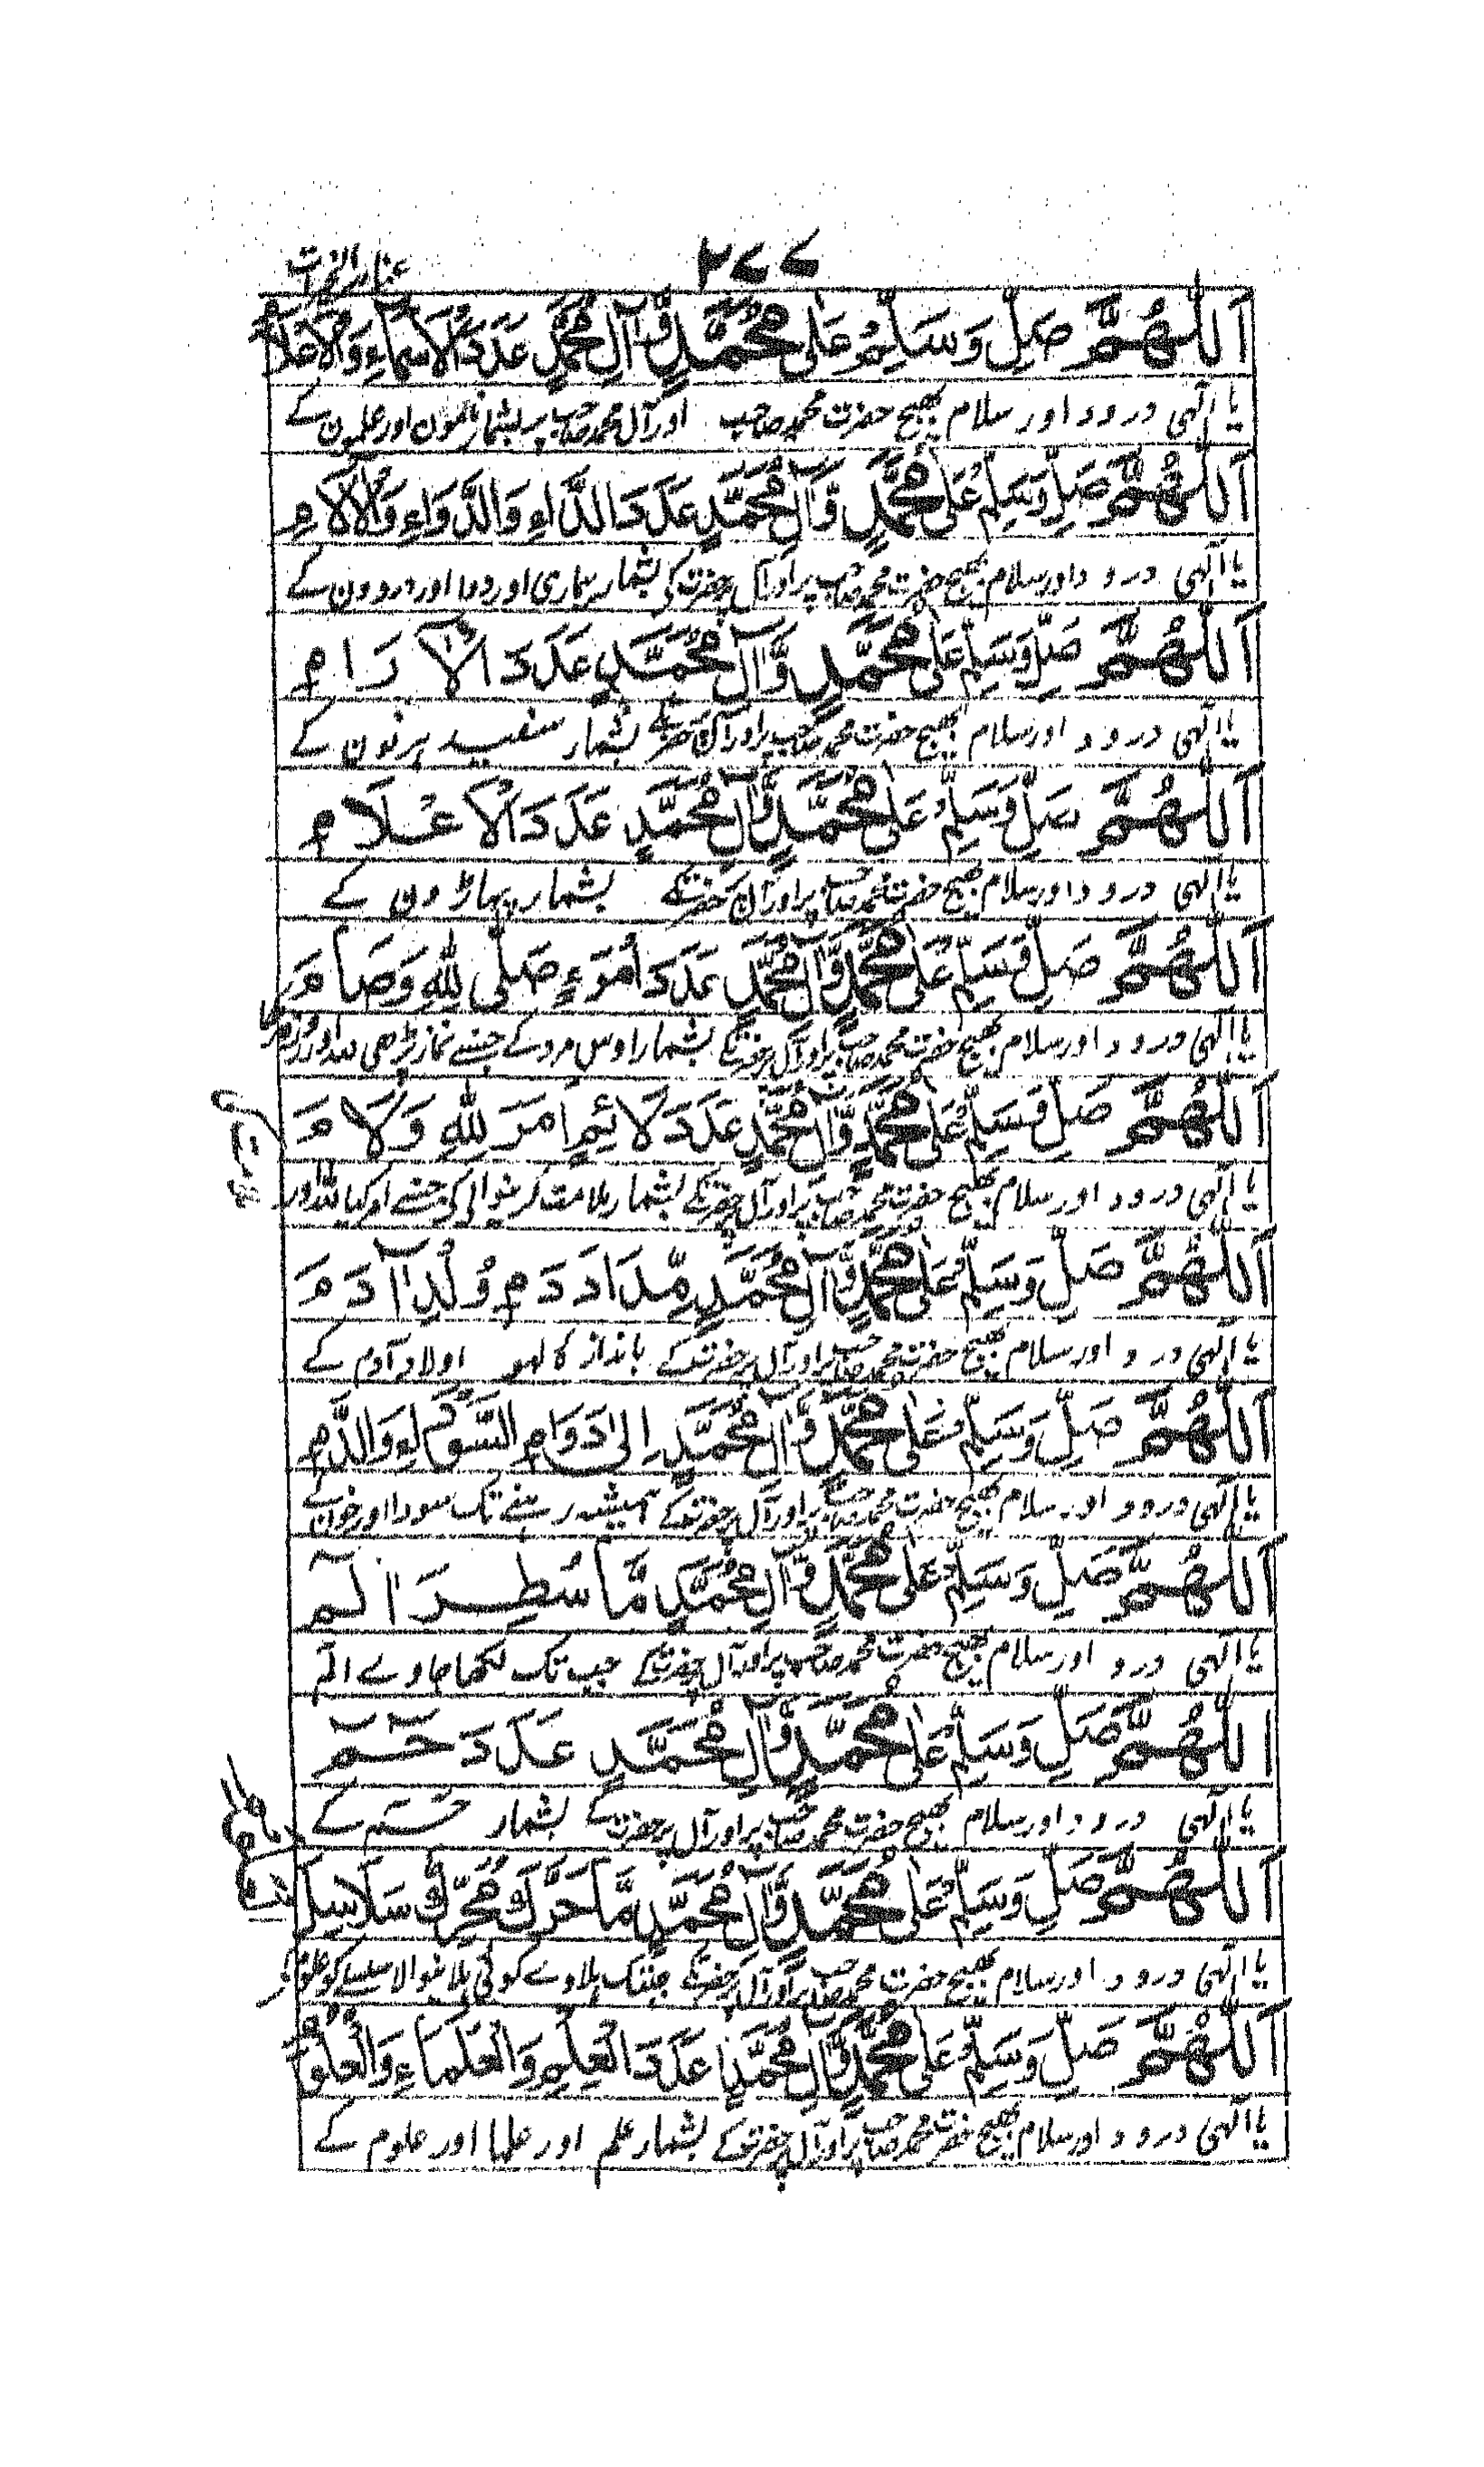 ٢٧٧
اَللّٰهُمَّ صَلِّ وَسَلِّمْ عَلٰى مُحَمَّدٍ وَّاٰلِ مُحَمَّدٍ عَدَدَ الْاَسْمَاءِ وَالْاَعْلَامِ
یا الٰهی درود اور سلام بھیج حضرت محمد صاحب اور آل محمد صاحب پر بشمار نامون اور علمون کے
اَللّٰهُمَّ صَلِّ وَسَلِّمْ عَلٰى مُحَمَّدٍ وَّاٰلِ مُحَمَّدٍ عَدَدَ الدَّاءِ وَالدَّوَاءِ وَالْاٰلَامِ
یا الٰهی درود اور سلام بھیج حضرت محمد صاحب پر اور آل پر حضرت کی بشمار بیماری اور دوا اور دردون کے
اَللّٰهُمَّ صَلِّ وَسَلِّمْ عَلٰى مُحَمَّدٍ وَّاٰلِ مُحَمَّدٍ عَدَدَ الْاٰرَامِ
یا الٰهی درود اور سلام بھیج حضرت محمد صاحب پر اور آل پر حضرت کے بشمار سفید ہرنون کے
اَللّٰهُمَّ صَلِّ وَسَلِّمْ عَلٰى مُحَمَّدٍ وَّاٰلِ مُحَمَّدٍ عَدَدَ الْاَعْلَامِ
یا الٰهی درود اور سلام بھیج حضرت محمد صاحب پر اور آل پر حضرت کے بشمار پہاڑون کے
اَللّٰهُمَّ صَلِّ وَسَلِّمْ عَلٰى مُحَمَّدٍ وَّاٰلِ مُحَمَّدٍ عَدَدَ امْرَءٍ صَلّٰى لِلّٰهِ وَصَامَ
یا الٰهی درود اور سلام بھیج حضرت محمد صاحب پر اور آل پر حضرت کے بشمار اوس مرد کے جسنے نماز پڑھی للہ اور روزہ رکھا
اَللّٰهُمَّ صَلِّ وَسَلِّمْ عَلٰى مُحَمَّدٍ وَّاٰلِ مُحَمَّدٍ عَدَدَ لَائِمٍ اَمَرَ لِلّٰهِ وَلَامَ
یا الٰهی درود اور سلام بھیج حضرت محمد صاحب پر اور آل پر حضرت کے بشمار ملامت کرنیوالی کی جسنے امر کیا للہ اور
اَللّٰهُمَّ صَلِّ وَسَلِّمْ عَلٰى مُحَمَّدٍ وَّاٰلِ مُحَمَّدٍ مِّدَادَ دَمِ وُلْدِ اٰدَمَ
یا الٰهی درود اور سلام بھیج حضرت محمد صاحب پر اور آل پر حضرت کے بانداز کا لہو اولاد آدم کے
اَللّٰهُمَّ صَلِّ وَسَلِّمْ عَلٰى مُحَمَّدٍ وَّاٰلِ مُحَمَّدٍ اِلٰى دَوَامِ السَّوْدَاءِ وَالدَّمِ
یا الٰهی درود اور سلام بھیج حضرت محمد صاحب پر اور آل پر حضرت کے ہمیشہ رہنے تک سودا اور خون کے
اَللّٰهُمَّ صَلِّ وَسَلِّمْ عَلٰى مُحَمَّدٍ وَّاٰلِ مُحَمَّدٍ مَّا سُطِرَ الٓمّ
یا الٰهی درود اور سلام بھیج حضرت محمد صاحب پر اور آل پر حضرت کے جب تک لکھا جاوے الم
اَللّٰهُمَّ صَلِّ وَسَلِّمْ عَلٰى مُحَمَّدٍ وَّاٰلِ مُحَمَّدٍ عَدَدَ حٰمٓ
یا الٰهی درود اور سلام بھیج حضرت محمد صاحب پر اور آل پر حضرت کے بشمار حٰم کے
اَللّٰهُمَّ صَلِّ وَسَلِّمْ عَلٰى مُحَمَّدٍ وَّاٰلِ مُحَمَّدٍ مَّا حَرَّكَ مُحَرِّكٌ سَلَاسِلَ
یا الٰهی درود اور سلام بھیج حضرت محمد صاحب پر اور آل پر حضرت کے جبتک ہلاوے کوئی ہلانیوالا سلسلے کو
اَللّٰهُمَّ صَلِّ وَسَلِّمْ عَلٰى مُحَمَّدٍ وَّاٰلِ مُحَمَّدٍ عَدَدَ الْعِلْمِ وَالْعُلَمَاءِ وَالْعُلُوْمِ
یا الٰهی درود اور سلام بھیج حضرت محمد صاحب پر اور آل پر حضرت کے بشمار علم اور علما اور علوم کے